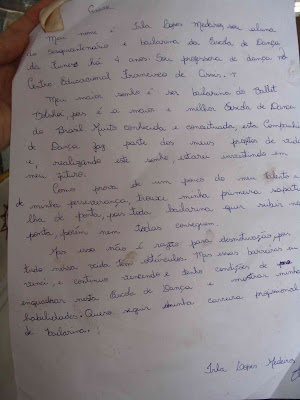 Carta
Meu nome é Isla Lopes Medeiros, sou aluna
do Cinquentenário e bailarina da Escola de Dança
da Funec há 4 anos. Sou professora de dança no
Centro Educacional Francisco de Assis.
Meu maior sonho é ser bailarina do Ballet
Bolshoi, pois é a maior e melhor Escola de Dança
do Brasil. Muito conhecida e conceituada, esta Companhia
de Dança faz parte dos meus projetos de vida
e, realizando este sonho estarei investindo em
meu futuro.
Como prova de um pouco do meu talento e
de minha perseverança, trouxe minha primeira sapati-
lha de ponta, pois toda bailarina quer subir na
ponta, porém nem todas conseguem.
Mas isso não é razão para desmotivação, pois
tudo nessa vida tem obstáculos. Mas essas barreiras eu
venci, e continuo vencendo e tenho condições de me
enquadrar nesta Escola de Dança e mostrar minhas
habilidades. Quero seguir minha carreira profissional
de bailarina.!
Isla Lopes Medeiros